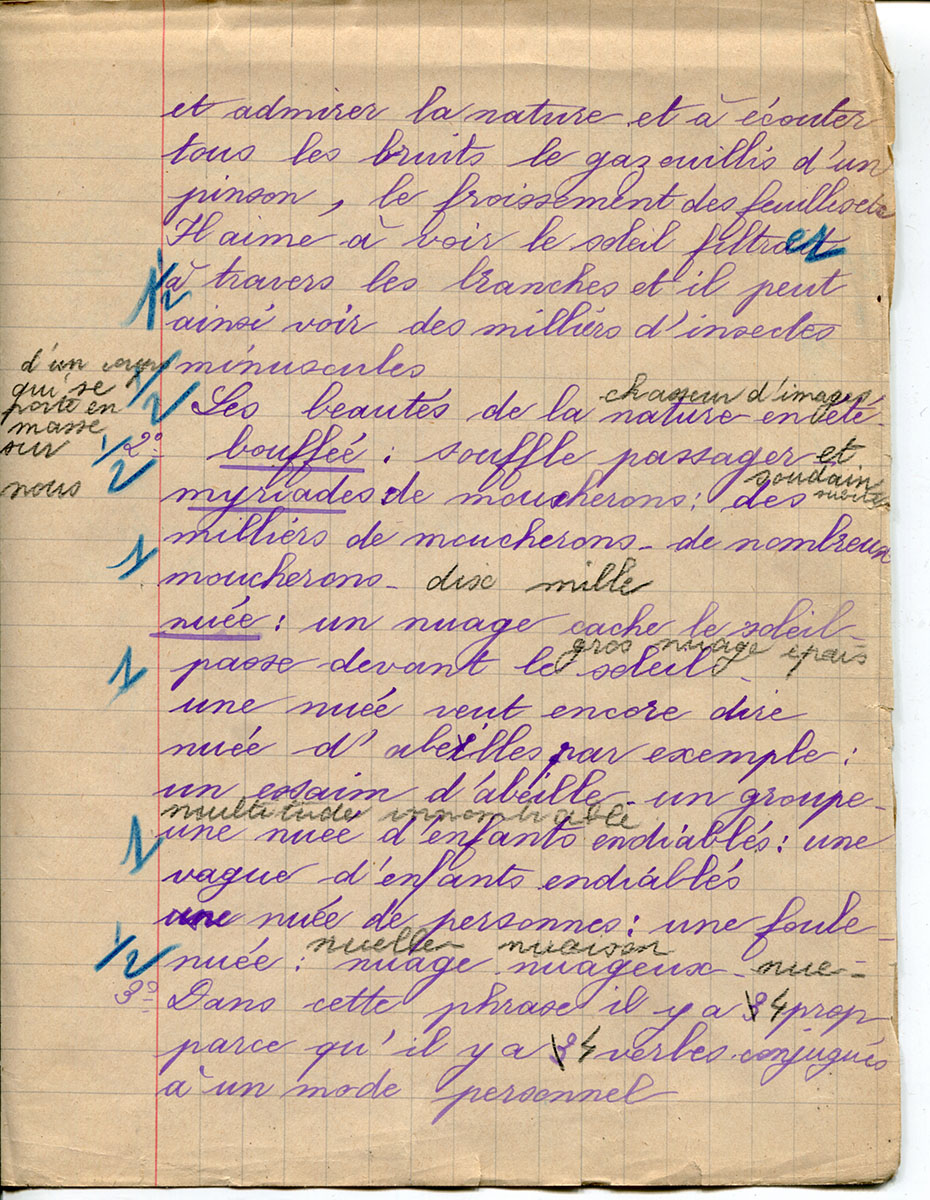 et admirer la nature et à écouter
tous les bruits le gazouillis d'un
pinson, le froissement des feuilles etc
Il aime à voir le soleil filtrer
1/2
à travers les branches et il peut
ainsi voir des milliérs d'insectes
minuscules
d'un
qui se
porte en
masse
sur
nous
1/2
chasseur d'images
Les beautés de la nature en été-
1/2
2°
bouffée : souffle passager et
soudain
myriades de moucherons : des
milliérs de moucherons - de nombreux
1
moucherons - dix mille
nuée : un nuage cache le soleil -
gros nuage épais
1
passe devant le soleil -
une nuée veut encore dire
nuée d'abeilles par exemple :
un essaim d'abéille - un groupe -
multitude innombrable
1
une nuée d'enfants endiablés : une
vague d'enfants endiablés
une nuée de personnes : une foule -
nuelle nuaison
1/2
nuée : nuage nuageux - nue -
3°
Dans cette phrase il y a 3 4 prop
parce qu'il y a 3 4 verbes conjugués
à un mode personnel